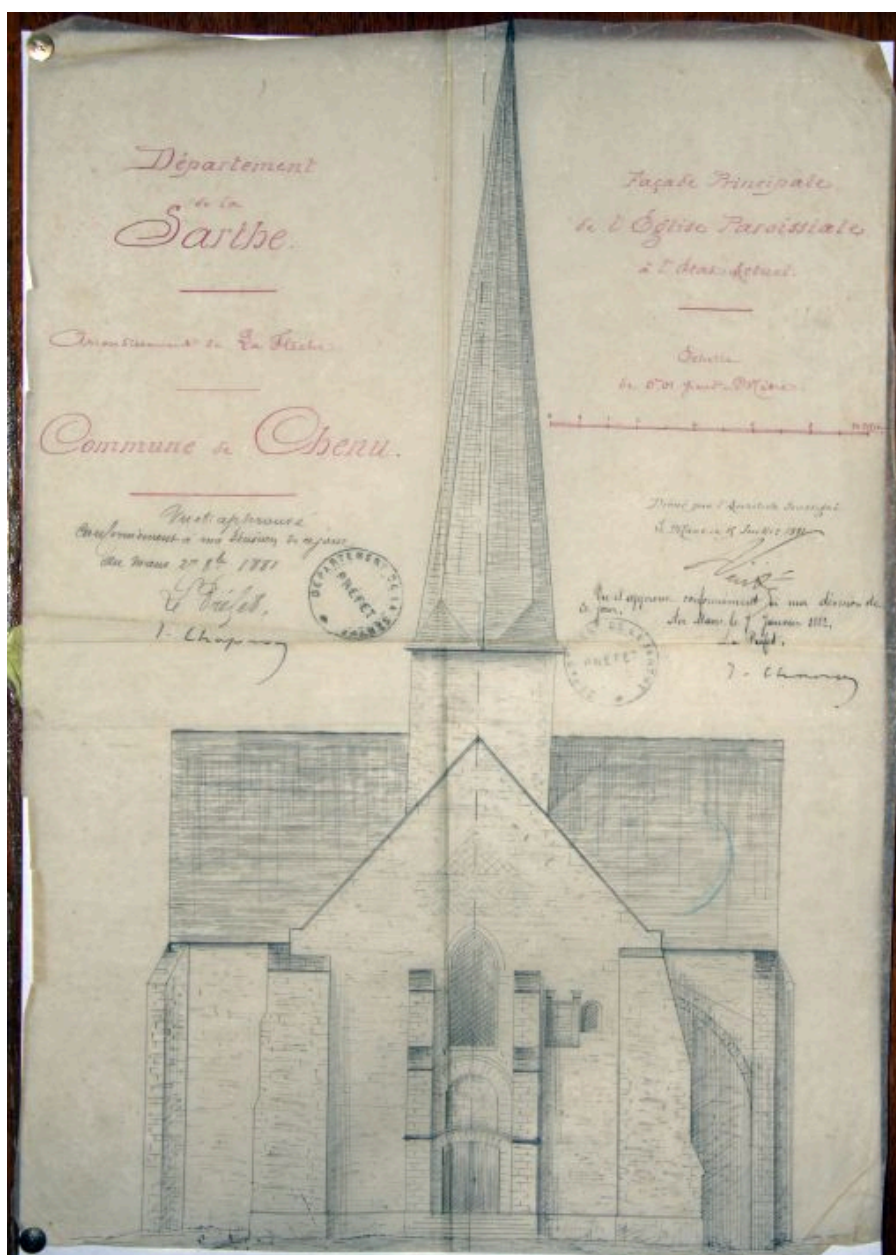 Département
de la
Sarthe.
Arrondissement de La Flèche
Commune de Chenu.
Vu et approuvé
conformément à ma décision de ce jour
au Mans 27 8bre 1881
Le Préfet,
DÉPARTEMENT DE LA SARTHE
PRÉFET
Façade Principale
de l'Église Paroissiale
à l'État Actuel.
Échelle
de 0m01 pour Mètre
Dressé par l'Architecte Soussigné
Le Mans le Juillet
Vu et approuvé conformément à ma décision de
ce jour.
Au Mans, le 7 Janvier 1882,
Le Préfet,
PRÉFET